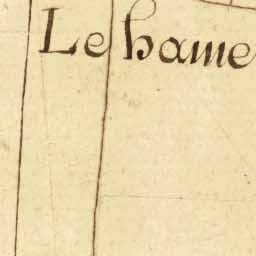 Le hame